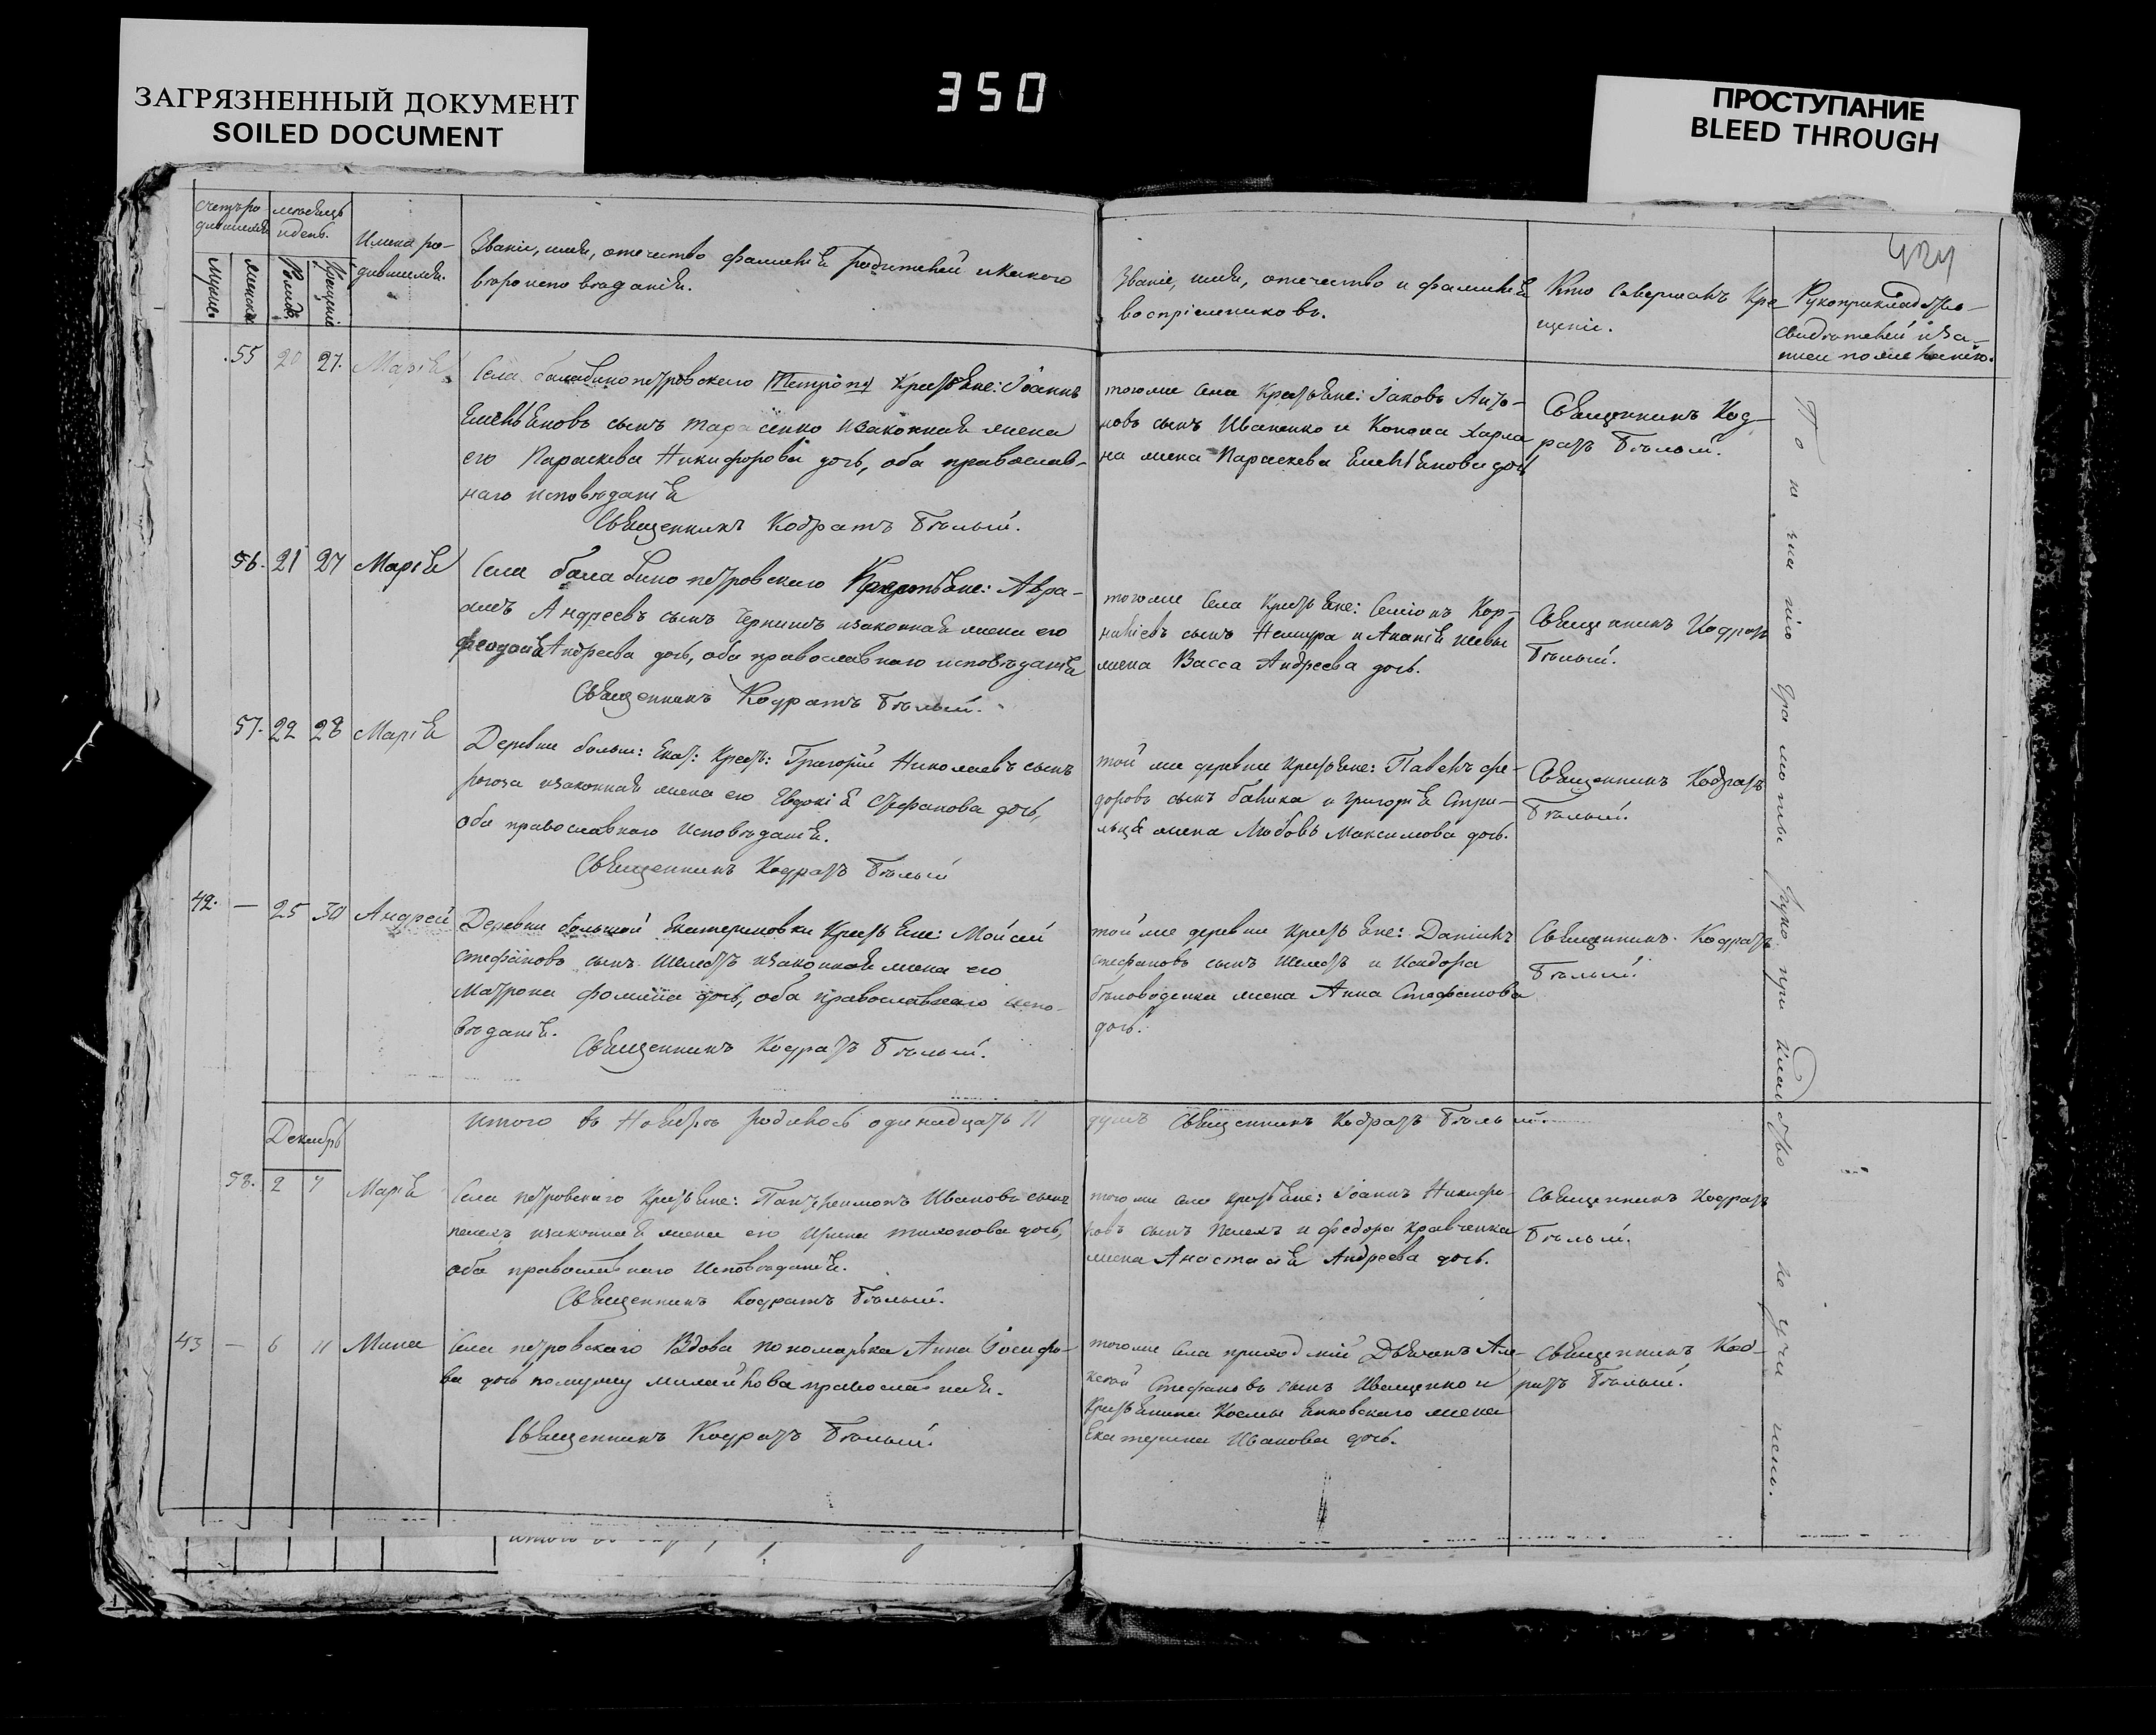 ЗАГРЯЗНЕННЫЙ ДОКУМЕНТ
SOILED DOCUMENT
350
ПРОСТУПАНИЕ
BLEED THROUGH
Имена ро-
дившихся.
Званіе, имя, отечество фамилія родителей и какого
вѣроисповѣданія.
Званіе, имя, отечество и фамилія
воспріемниковъ.
Кто совершалъ кре
щеніе.
Рукоприкладство
свидѣтелей иза-
писи по желанію.
55 20 27. Марія
Села балабинопетровского Крестьяне: Іоаннъ
Емельяновъ сынъ Тарасенко изаконная жена
его Параскева Никифорова дочь, оба православ-
наго исповѣданія
Священникъ Кодратъ Бѣлый.
тогоже села крестьяне: Іаковъ Анто-
новъ сынъ Иваненко и Конона
жена Параскева Емельянова дочь
Священникъ Код
ратъ Бѣлый.
56. 21 27 Марія
Села балабинопетровского Крестьяне: Авра-
амъ Андреевъ сынъ изаконная жена его
феодосія Андреева дочь, оба православнаго исповѣданія
Священникъ Кодратъ Бѣлый.
тогоже Села крестьяне: Симіонъ Кор-
ниліевъ сынъ и Ананія
жена Васса Андреева дочь.
Священникъ Кодратъ
Бѣлый.
57. 22 28 Марія
Деревни больш: Екат: Крест: Григорій Николаевъ сынъ
рогоза изаконная жена его Евдокія Стефанова дочь,
оба православнаго Исповѣданія.
Священникъ Кодратъ Бѣлый
той же деревни крестьяне: Павелъ фе-
доровъ сынъ и григорія Стри-
льца жена Любовь Максимова дочь.
Священникъ Кодратъ
Бѣлый.
42. — 25 30 Андрей
Деревни большой Екатериновки Крестьяне: Мойсей
стефановъ сынъ Шелестъ изаконная жена его
Матрона фомина дочь, оба православнаго испо-
вѣданія.
Священникъ Кодратъ Бѣлый.
той же деревни крестьяне: Даніилъ
стефановъ сынъ Шелестъ и Исидора
бѣловоденка жена Анна Стефанова
дочь.
Священникъ Кодратъ
Бѣлый.
итого въ Ноябрѣ родилось одинадцать 11
душъ Священникъ Кодратъ Бѣлый.
Декабрь
58. 2 7 Марія
Села петровскаго Крестьяне: Пантелеимонъ Ивановъ сынъ
изаконная жена его Ирина тихонова дочь,
оба православнаго Исповѣданія.
Священникъ Кодратъ Бѣлый.
тогоже села крестьяне: Іоаннъ Никифо-
ровъ сынъ и федора кравченка
жена Анастасія Андреева дочь.
Священникъ Кодратъ
Бѣлый.
43 — 6 11 Мина
Села петровскаго Вдова пономарька Анна Іосифо-
ва дочь помужу православная.
Священникъ Кодратъ Бѣлый.
тогоже Села приход Дьячокъ Але-
ксѣй Стефановъ сынъ Иващенко и
Крестьянина Космы жена
Екатерина Иванова дочь.
Священникъ Код-
ратъ Бѣлый.
По незнанію грамоты рукоприкладство не учинено.